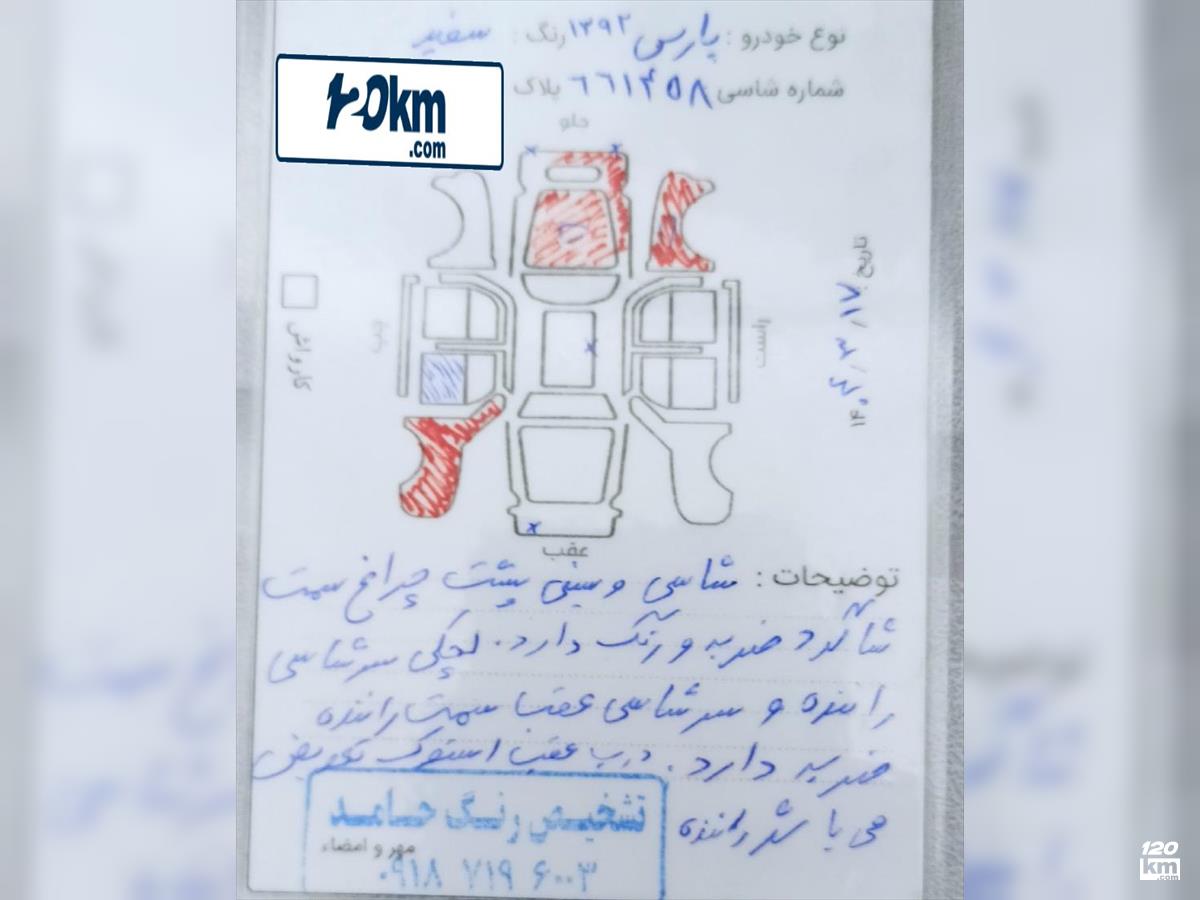 نوع خودرو : پارس ۱۳۹۲ رنگ : سفید
شماره شاسی ۶۶۱۴۵۸ پلاک
120km
.com
جلو
تاریخ: ۱۴۰۴٫۳٫۱۷
چپ
راست
کارواش
عقب
توضیحات : شاسی و سینی پشت چراغ سمت
شاگرد ضربه و رنگ دارد. لچکی سرشاسی
راننده و سرشاسی عقب سمت راننده
ضربه دارد. درب عقب استوک تعویض
می باشد راننده
تشخیص رنگ حامد
مهر و امضاء
۰۹۱۸ ۷۱۹ ۶۰۰۳
120
km
.com